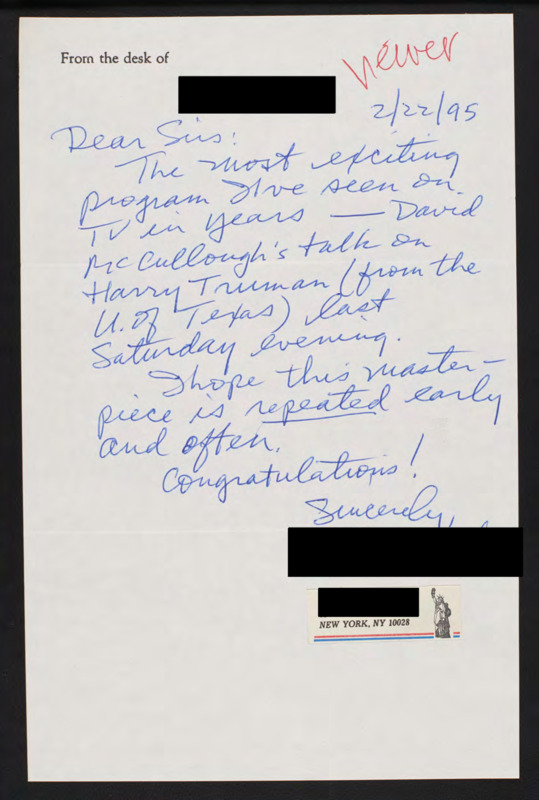 From the desk of
newer
2/22/95
Dear Sirs:
The most exciting
program I've seen on
TV in years — David
McCullough's talk on
Harry Truman (from the
U. of Texas) last
Saturday evening.
I hope this master-
piece is repeated early
and often.
Congratulations!
Sincerely,
NEW YORK, NY 10028